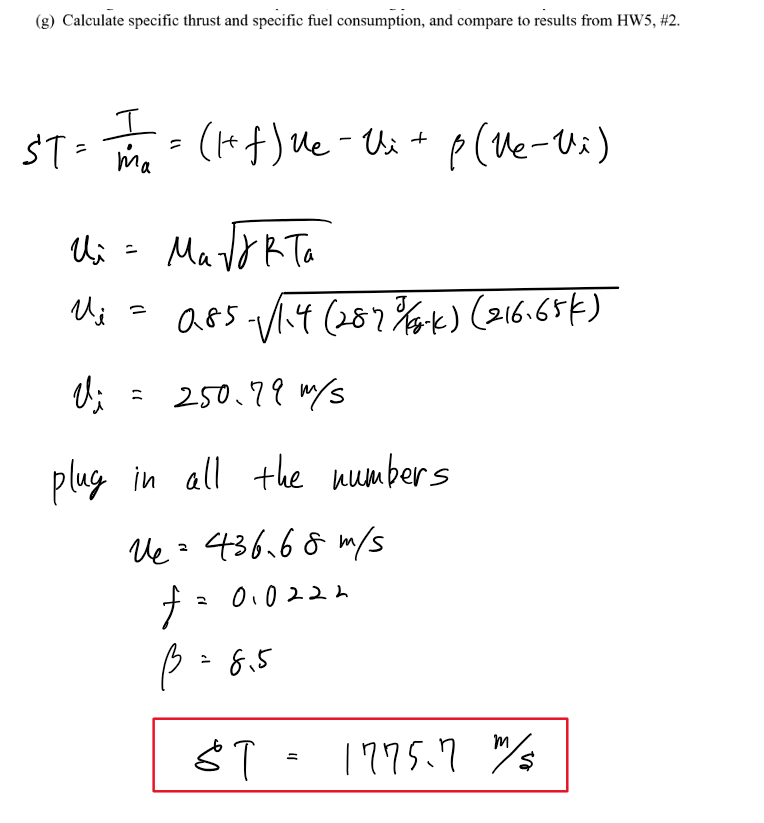 (g) Calculate specific thrust and specific fuel consumption, and compare to results from HW5, #2.
ST = T/ṁa = (1+f)ue - ui + β(ue-ui)
ui = Ma√γRTa
ui = 0.85 √1.4 (287 J/kg-k) (216.65k)
ui = 250.79 m/s
plug in all the numbers
ue = 436.68 m/s
f = 0.0222
β = 8.5
ST = 1775.7 m/s